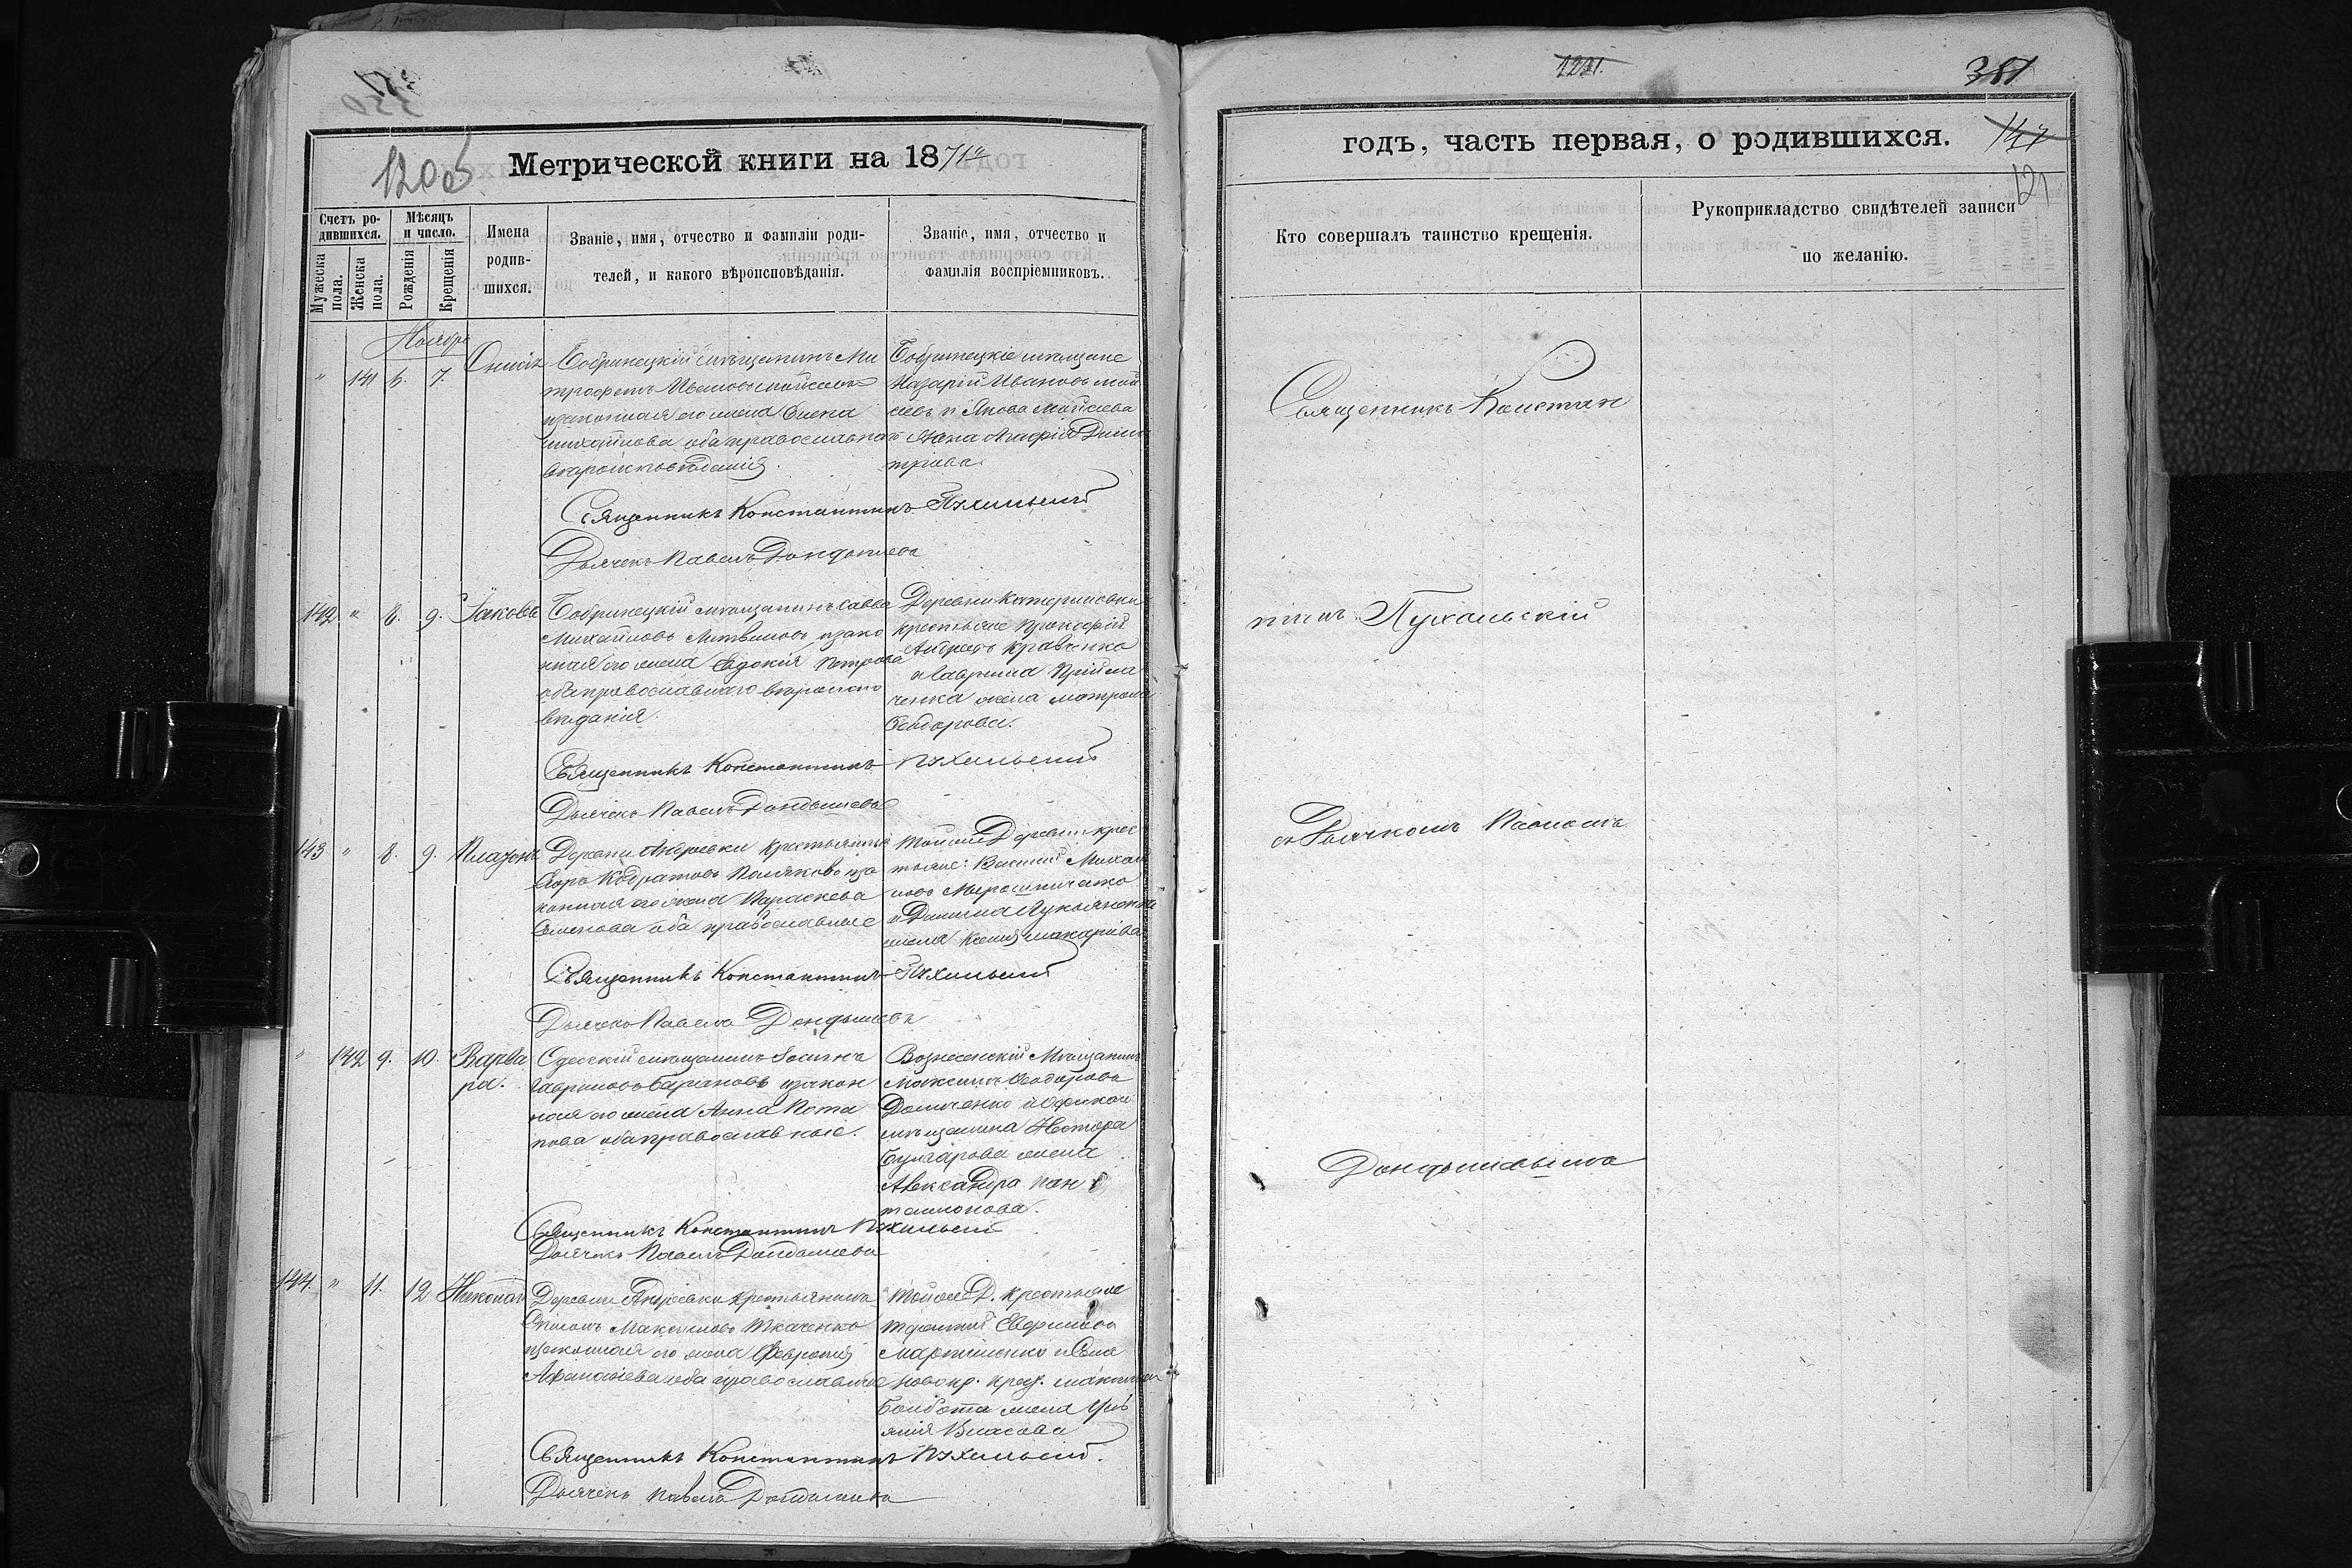 Метрической книги на 1871й
1205
Счетъ ро-
дившихся.
Мужеска
пола.
Женска
пола.
Мѣсяцъ
и число.
Рожденія
Крещенія
Имена
родив-
шихся.
Званіе, имя, отчество и фамиліи роди-
телей, и какого вѣроисповѣданія.
Званіе, имя, отчество и
фамилія воспріемниковъ.
Ноября
" 141 6. 7.
Бобринецкій мѣщанинъ Ми
трофанъ Ивановъ
изаконная его жена
Михайлова оба православнаго
вѣроисповѣданія.
Бобринецкіе мѣщане
Назарій Ивановъ Мой
сеевъ и Якова Мойсеева
жена Агафія Дими
тріева
Священникъ Константинъ Пухальскій
Дьячекъ Павелъ Дондышевъ
142 " 8. 9. Іаковъ
Бобринецкій мѣщанинъ Савва
Михайловъ Литвиновъ изако
нная его жена Евдокія Петрова
оба православнаго вѣроиспо
вѣданія.
Деревни Катериновки
крестьяне Прокофій
Кравченко
и Гавриила Прійма
ченка жена Матрона
Ѳеодорова.
Священникъ Константинъ Пухальскій
Дьячекъ Павелъ Дондышевъ
143 " 8. 9. Платонъ
Деревни Андреевки крестьянинъ
Кодратовъ Поляковъ иза
конная его жена Параскева
Семенова оба православные
Той же Деревни крес
тьяне: Василій Михай
ловъ Мирошниченко
и Даніила Лукьяненка
жена Ксенія Макарова
Священникъ Константинъ Пухальскій
Дьячекъ Павелъ Дондышевъ
" 142 9. 10. Варва
ра.
Одесскій мѣщанинъ Іосифъ
Гавриловъ Барановъ изакон
ная его жена Анна Пота
пова оба православные.
Вознесенскій Мѣщанинъ
Максимъ Ѳеодоровъ
Демченко и
мѣщанина Нестора
Булгарова жена
Александра Пан
телимонова.
Священникъ Константинъ Пухальскій
Дьячекъ Павелъ Дондышевъ
144. " 11. 12
Деревни Андреевки крестьянинъ
Максимовъ Ткаченко
изаконная его жена Февронія
Афанасіева оба православные
Той же Д. крестьяне
Терентій Евфимовъ
Мартыненко и Села
Новокр.
жена Уль
янія Власова
Священникъ Константинъ Пухальскій.
Дьячекъ Павелъ Дондышевъ
381
годъ, часть первая, о родившихся.
147
121
Кто совершалъ таинство крещенія.
Рукоприкладство свидѣтелей записи
по желанію.
Священникъ Констан
тинъ Пухальскій
съ Дьячкомъ Павломъ
Дондышевымъ